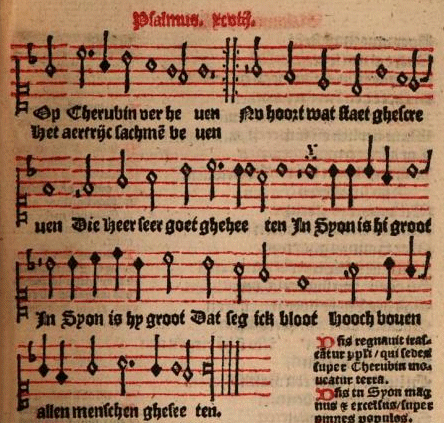 Psalmus. xcviij.
Op Cherubin ver he uen Nv hoort wat staet ghescre
Het aertrijc sachmē be uen
uen Die Heer seer goet ghehee ten In Syon is hi groot
In Syon is hy groot Dat seg ick bloot Hooch bouen
allen menschen ghesee ten.
Dñs regnauit iras-
catur ppľi / qui sedes
super Cherubin mo-
ueatur terra.
Dñs in Syon mag
nus & excelsus / super
omnes populos.